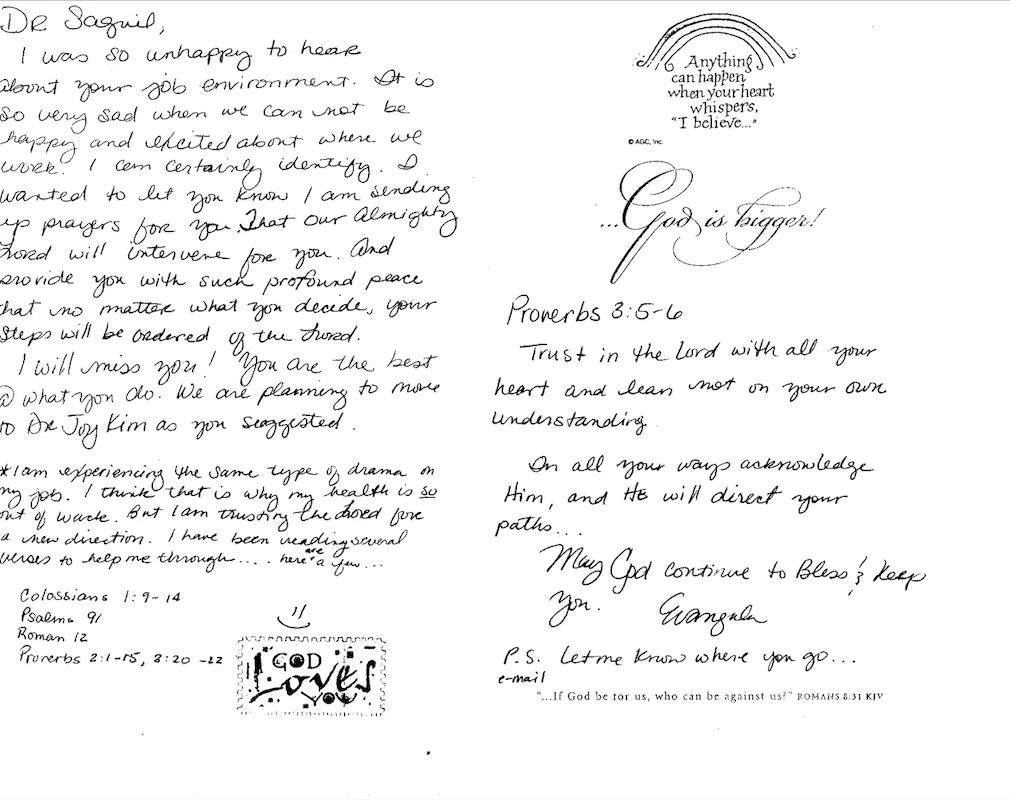 Dr Saguil,
I was so unhappy to hear
about your job environment. It is
so very sad when we can not be
happy and excited about where we
work. I can certainly identify. I
wanted to let you know I am sending
up prayers for you. That our Almighty
Lord will intervene for you. And
provide you with such profound peace
that no matter what you decide, your
steps will be ordered of the Lord.
I will miss you! You are the best
@ what you do. We are planning to move
to Dr Joy Kim as you suggested.
*I am experiencing the same type of drama on
my job. I think that is why my health is so
out of wack. But I am trusting the Lord for
a new direction. I have been reading several
verses to help me through.... here are a few...
Colossians 1:9-14
Psalms 91
Roman 12
Proverbs 2:1-15, 3:20-22
GOD
Loves
YOU
Anything
can happen
when your heart
whispers,
"I believe..."
© AGC, Inc.
...God is bigger!
Proverbs 3:5-6
Trust in the Lord with all your
heart and lean not on your own
understanding
In all your ways acknowledge
Him, and HE will direct your
paths...
May God continue to Bless & keep
you. Evangula
P.S. Let me know where you go...
e-mail
"...If God be for us, who can be against us?" ROMANS 8:31 KJV